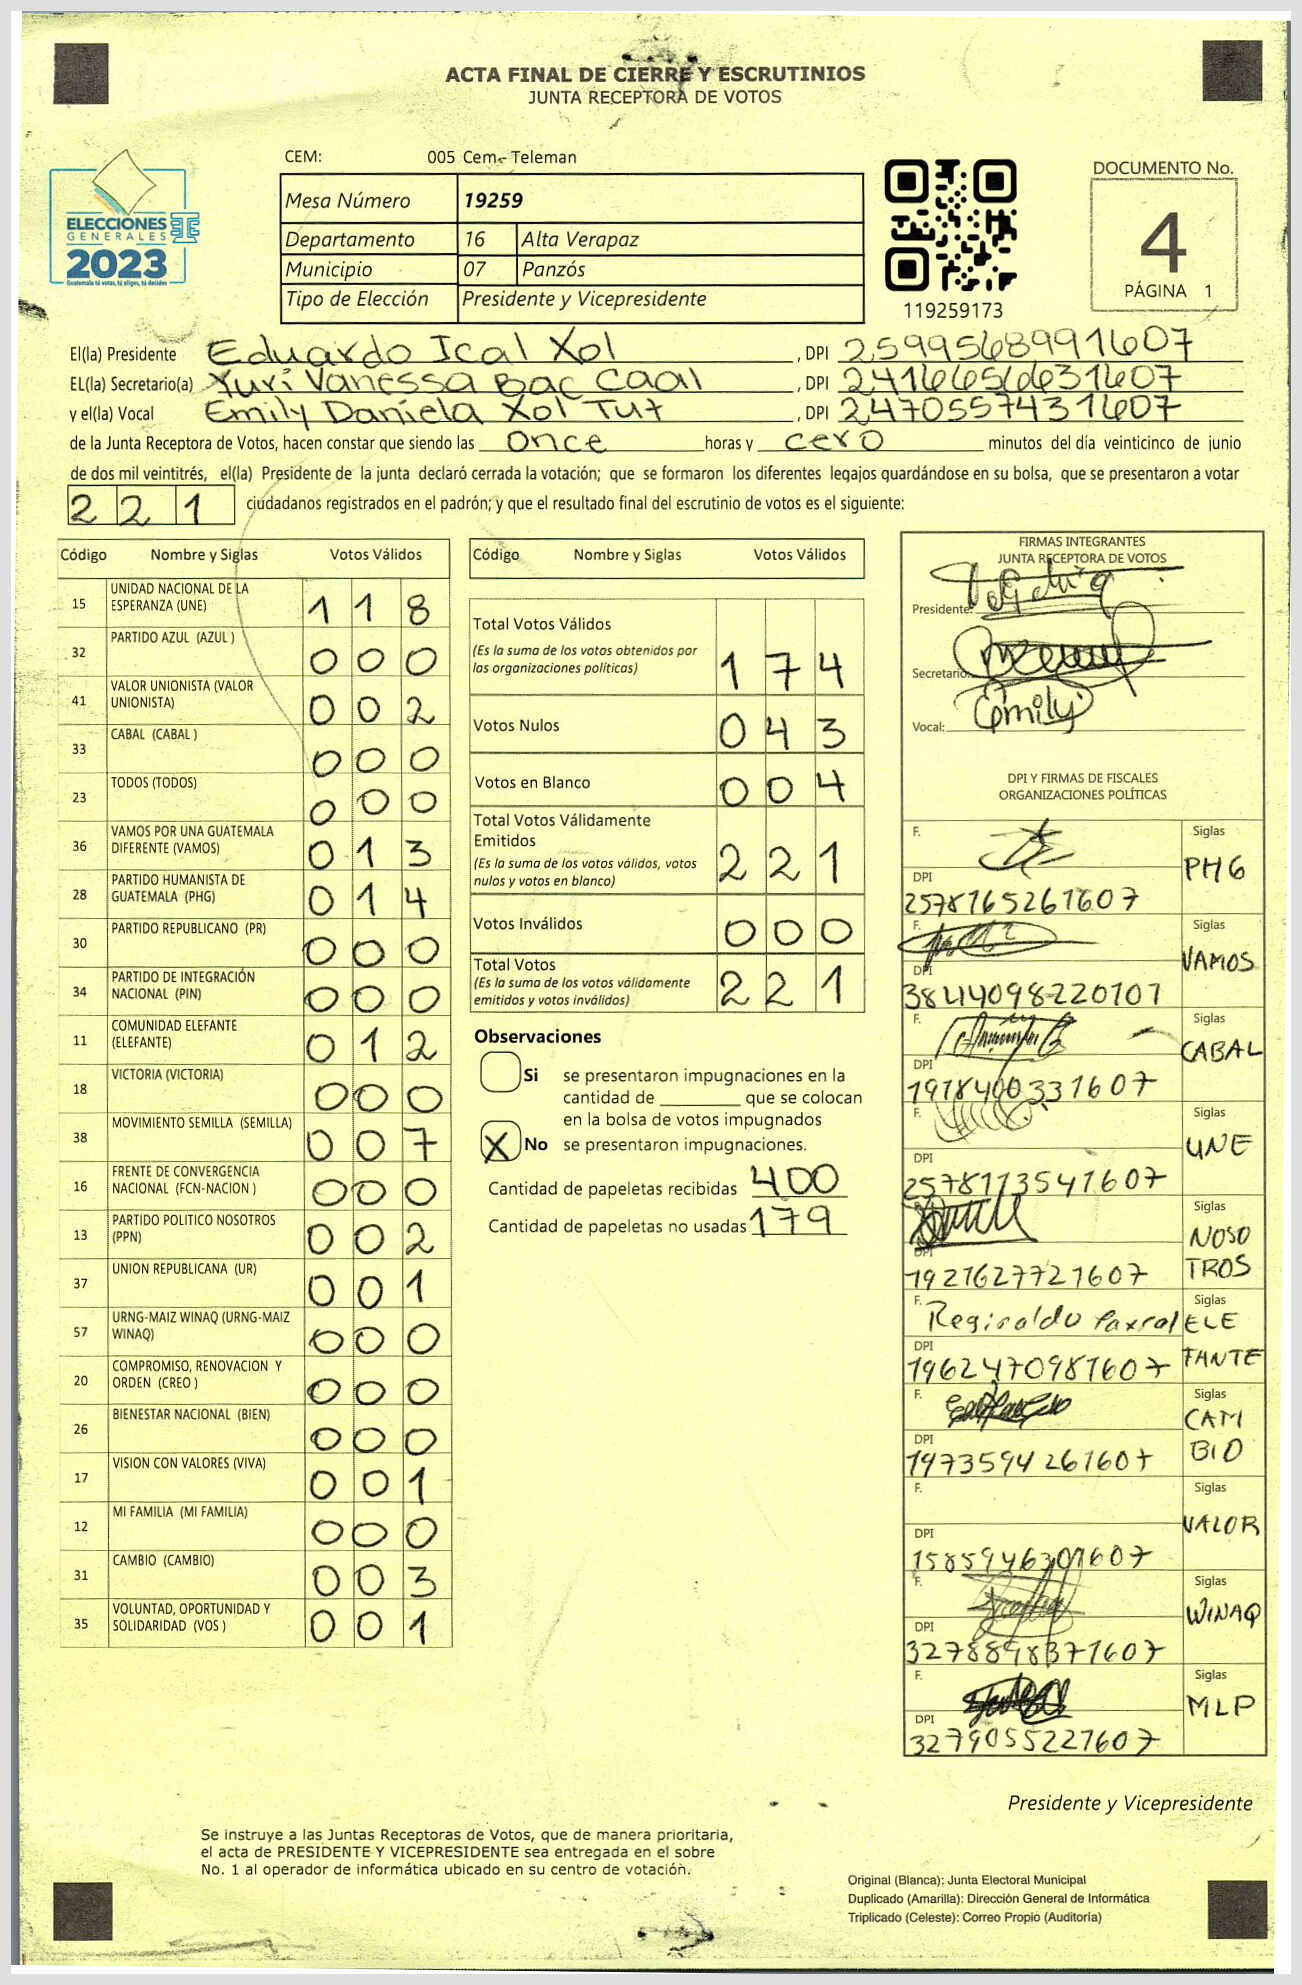 ACTA FINAL DE CIERRE Y ESCRUTINIOS
JUNTA RECEPTORA DE VOTOS
CEM: 005 Cem- Teleman
Mesa Número 19259
Departamento 16 Alta Verapaz
Municipio 07 Panzós
Tipo de Elección Presidente y Vicepresidente
ELECCIONES
GENERALES
2023
Guatemala tú votas, tú eliges, tú decides
119259173
DOCUMENTO No.
4
PÁGINA 1
El(la) Presidente Eduardo Ical Xol , DPI 2599568991607
EL(la) Secretario(a) Yuri Vanessa Bac Caal , DPI 2416656631607
y el(la) Vocal Emily Daniela Xol Tut , DPI 2470557431607
de la Junta Receptora de Votos, hacen constar que siendo las once horas y cero minutos del día veinticinco de junio
de dos mil veintitrés, el(la) Presidente de la junta declaró cerrada la votación; que se formaron los diferentes legajos guardándose en su bolsa, que se presentaron a votar
221 ciudadanos registrados en el padrón; y que el resultado final del escrutinio de votos es el siguiente:
Código Nombre y Siglas Votos Válidos
15 UNIDAD NACIONAL DE LA ESPERANZA (UNE) 118
32 PARTIDO AZUL (AZUL ) 000
41 VALOR UNIONISTA (VALOR UNIONISTA) 002
33 CABAL (CABAL ) 000
23 TODOS (TODOS) 000
36 VAMOS POR UNA GUATEMALA DIFERENTE (VAMOS) 013
28 PARTIDO HUMANISTA DE GUATEMALA (PHG) 014
30 PARTIDO REPUBLICANO (PR) 000
34 PARTIDO DE INTEGRACIÓN NACIONAL (PIN) 000
11 COMUNIDAD ELEFANTE (ELEFANTE) 012
18 VICTORIA (VICTORIA) 000
38 MOVIMIENTO SEMILLA (SEMILLA) 007
16 FRENTE DE CONVERGENCIA NACIONAL (FCN-NACION ) 000
13 PARTIDO POLITICO NOSOTROS (PPN) 002
37 UNION REPUBLICANA (UR) 001
57 URNG-MAIZ WINAQ (URNG-MAIZ WINAQ) 000
20 COMPROMISO, RENOVACION Y ORDEN (CREO ) 000
26 BIENESTAR NACIONAL (BIEN) 000
17 VISION CON VALORES (VIVA) 001
12 MI FAMILIA (MI FAMILIA) 000
31 CAMBIO (CAMBIO) 003
35 VOLUNTAD, OPORTUNIDAD Y SOLIDARIDAD (VOS ) 001
Código Nombre y Siglas Votos Válidos
Total Votos Válidos 174
(Es la suma de los votos obtenidos por
las organizaciones políticas)
Votos Nulos 043
Votos en Blanco 004
Total Votos Válidamente Emitidos 221
(Es la suma de los votos válidos, votos
nulos y votos en blanco)
Votos Inválidos 000
Total Votos 221
(Es la suma de los votos válidamente
emitidos y votos inválidos)
Observaciones
Si se presentaron impugnaciones en la
cantidad de ________ que se colocan
en la bolsa de votos impugnados
X No se presentaron impugnaciones.
Cantidad de papeletas recibidas 400
Cantidad de papeletas no usadas 179
FIRMAS INTEGRANTES
JUNTA RECEPTORA DE VOTOS
Presidente:
Secretario:
Vocal: Emily
DPI Y FIRMAS DE FISCALES
ORGANIZACIONES POLÍTICAS
F. Siglas PHG
DPI 2578765261607
F. Siglas VAMOS
DPI
F. Siglas CABAL
DPI 1918400331607
F. Siglas UNE
DPI 2578113541607
F. Siglas NOSOTROS
DPI 1921627721607
F. Reginaldo Siglas ELEFANTE
DPI 1962470981607
F. Siglas CAMBIO
DPI 1973594261607
F. Siglas VALOR
DPI 1585946301607
F. Siglas WINAQ
DPI 3278898371607
F. Siglas MLP
DPI 3279055221607
Presidente y Vicepresidente
Se instruye a las Juntas Receptoras de Votos, que de manera prioritaria,
el acta de PRESIDENTE Y VICEPRESIDENTE sea entregada en el sobre
No. 1 al operador de informática ubicado en su centro de votación.
Original (Blanca): Junta Electoral Municipal
Duplicado (Amarilla): Dirección General de Informática
Triplicado (Celeste): Correo Propio (Auditoría)